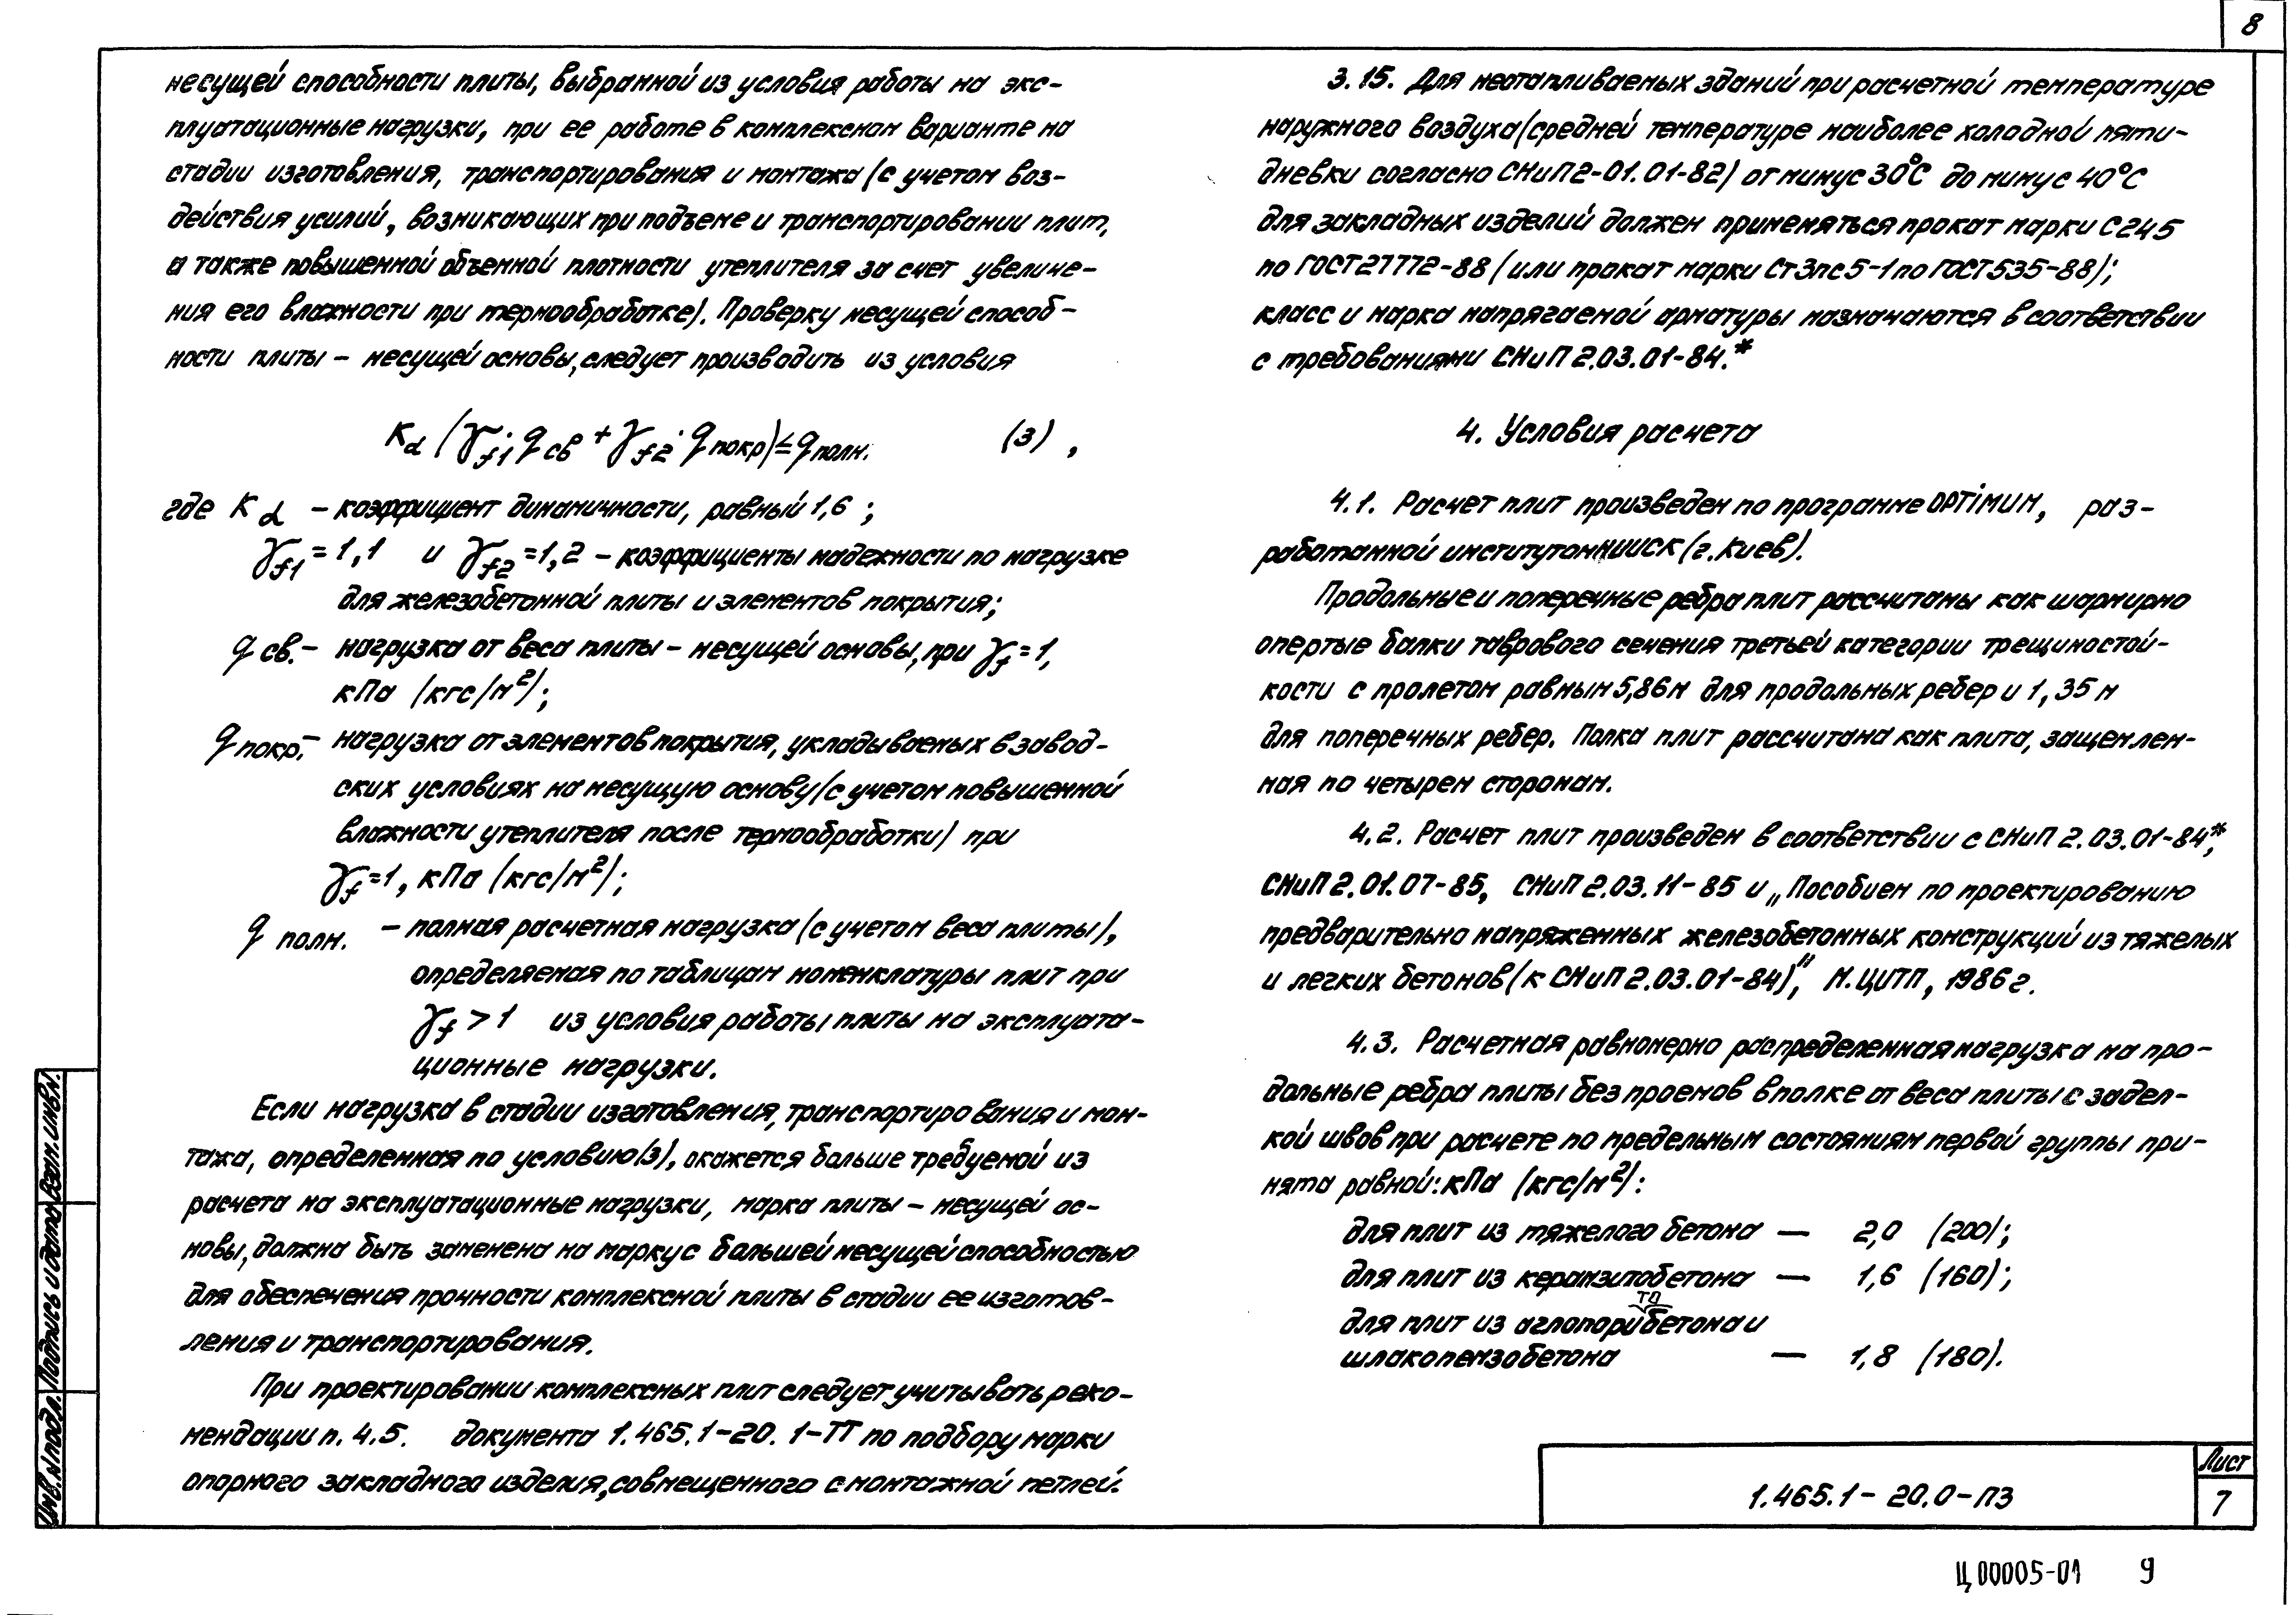 8
несущей способности плиты, выбранной из условия работы на экс-
плуатационные нагрузки, при ее работе в комплексном варианте на
стадии изготовления, транспортирования и монтажа (с учетом воз-
действия усилий, возникающих при подъеме и транспортировании плит,
а также повышенной объемной плотности утеплителя за счет увеличе-
ния его влажности при термообработке). Проверку несущей способ-
ности плиты - несущей основы, следует производить из условия
Kd (γf1·qсв + γf2·qпокр) ≤ qполн. (3) ,
где Kd - коэффициент динамичности, равный 1,6 ;
γf1 = 1,1 и γf2 = 1,2 - коэффициенты надежности по нагрузке
для железобетонной плиты и элементов покрытия;
qсв. - нагрузка от веса плиты - несущей основы, при γf = 1,
кПа (кгс/м²);
qпокр. - нагрузка от элементов покрытия, укладываемых в завод-
ских условиях на несущую основу (с учетом повышенной
влажности утеплителя после термообработки) при
γf = 1, кПа (кгс/м²);
q полн. - полная расчетная нагрузка (с учетом веса плиты),
определяемая по таблицам номенклатуры плит при
γf > 1 из условия работы плиты на эксплуата-
ционные нагрузки.
Если нагрузка в стадии изготовления, транспортирования и мон-
тажа, определенная по условию (3), окажется больше требуемой из
расчета на эксплуатационные нагрузки, марка плиты - несущей ос-
новы, должна быть заменена на марку с большей несущей способностью
для обеспечения прочности комплексной плиты в стадии ее изготов-
ления и транспортирования.
При проектировании комплексных плит следует учитывать реко-
мендации п. 4.5. документа 1.465.1-20. 1-ТТ по подбору марки
опорного закладного изделия, совмещенного с монтажной петлей.
3.15. Для неотапливаемых зданий при расчетной температуре
наружного воздуха (средней температуре наиболее холодной пяти-
дневки согласно СНиП 2-01.01-82) от минус 30°С до минус 40°С
для закладных изделий должен применяться прокат марки С245
по ГОСТ 27772-88 (или прокат марки Ст3пс5-1 по ГОСТ 535-88);
класс и марка напрягаемой арматуры назначаются в соответствии
с требованиями СНиП 2.03.01-84.*
4. Условия расчета
4.1. Расчет плит произведен по программе OPTiMUM, раз-
работанной институтом НИИСК (г. Киев).
Продольные и поперечные ребра плит рассчитаны как шарнирно
опертые балки таврового сечения третьей категории трещиностой-
кости с пролетом равным 5,86м для продольных ребер и 1,35 м
для поперечных ребер. Полка плит рассчитана как плита, защемлен-
ная по четырем сторонам.
4.2. Расчет плит произведен в соответствии с СНиП 2.03.01-84*,
СНиП 2.01.07-85, СНиП 2.03.11-85 и „Пособием по проектированию
предварительно напряженных железобетонных конструкций из тяжелых
и легких бетонов (к СНиП 2.03.01-84)", М. ЦИТП, 1986 г.
4.3. Расчетная равномерно распределенная нагрузка на про-
дольные ребра плиты без проемов в полке от веса плиты с задел-
кой швов при расчете по предельным состояниям первой группы при-
нята равной: кПа (кгс/м²):
для плит из тяжелого бетона — 2,0 (200);
для плит из керамзитобетона — 1,6 (160);
для плит из аглопоритобетона и
шлакопемзобетона — 1,8 (180).
Инв.N подл. Подпись и дата Взам.инв.N
1.465.1-20.0-ПЗ
Лист
7
Ц00005-01 9